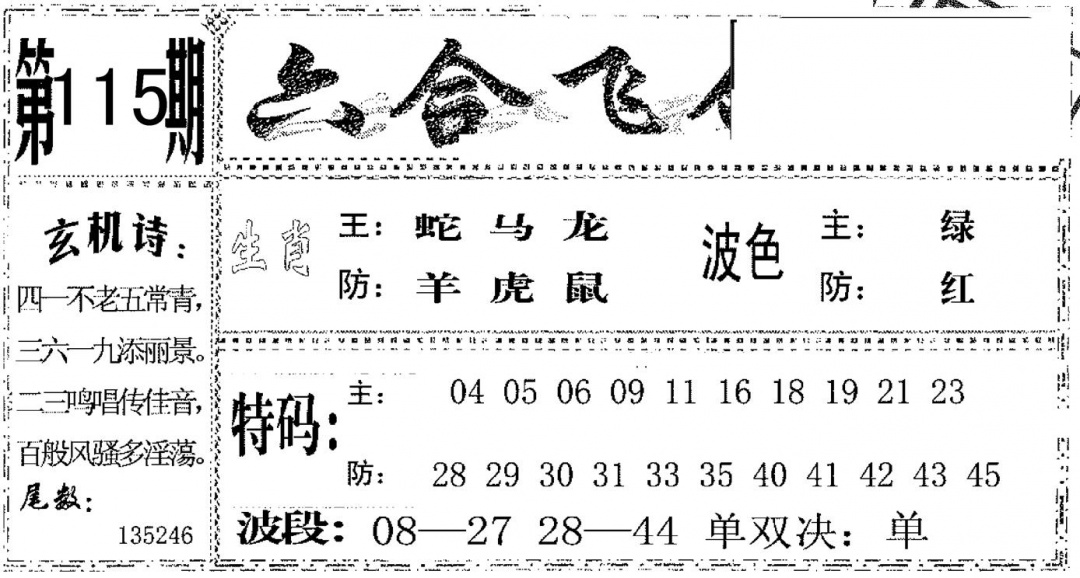 第115期
六合飞
玄机诗：
四一不老五常青，
三六一九添丽景。
二三鸣唱传佳音，
百般风骚多淫荡。
尾数：
135246
生肖 王：蛇 马 龙
防：羊 虎 鼠
波色 主：绿
防：红
特码：
主：04 05 06 09 11 16 18 19 21 23
防：28 29 30 31 33 35 40 41 42 43 45
波段：08—27 28—44 单双决：单